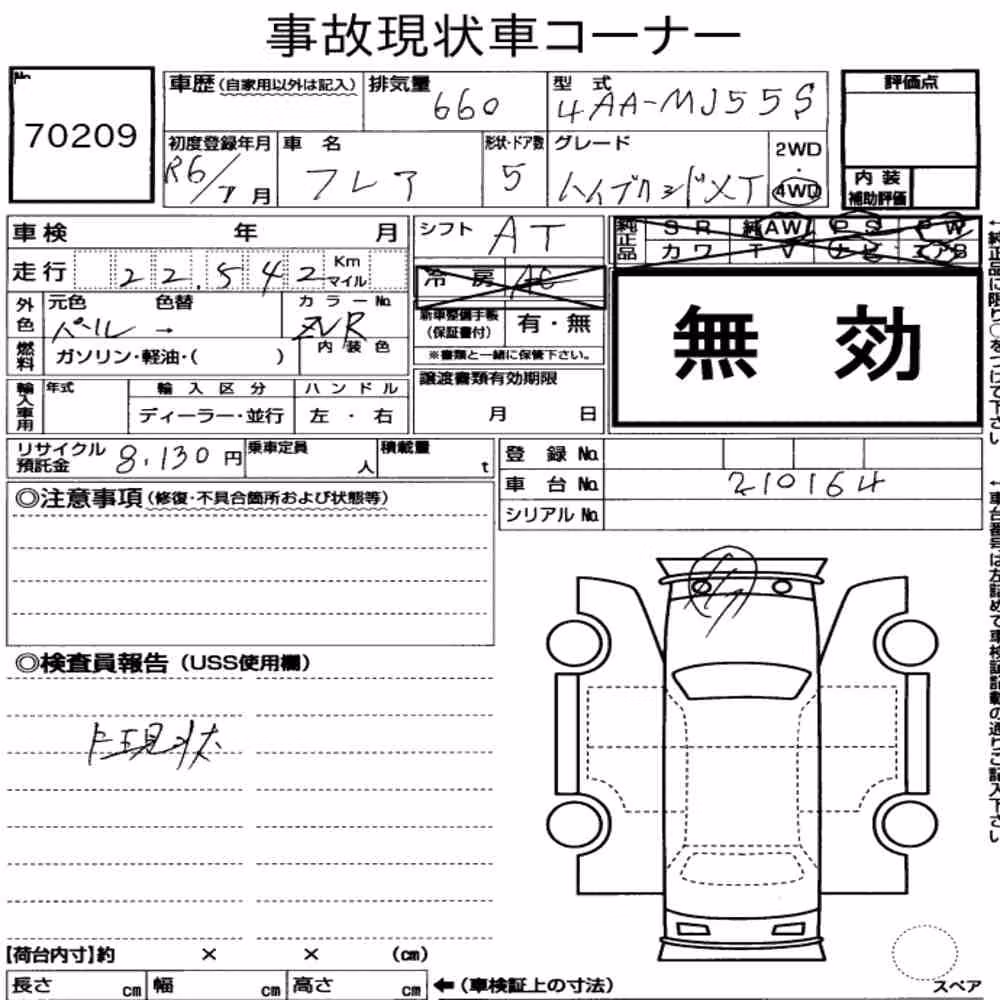 事故現状車コーナー
No.
70209
車歴(自家用以外は記入)
排気量
660
型 式
4AA-MJ55S
評価点
初度登録年月
R6/7月
車 名
フレア
形状・ドア数
5
グレード
ハイブリッドXT
2WD
・
4WD
内 装
補助評価
車検 年 月
シフト
AT
純正品
SR 純AW PS PW
カワ TV ナビ エアB
走行 22,542 Km マイル
冷 房 AC
無 効
外色
元色 色替
パール →
カラーNo.
ZVR
内 装 色
新車整備手帳
(保証書付)
有・無
※書類と一緒に保償下さい。
燃料
ガソリン・軽油・( )
輸入車用
年式
輸 入 区 分
ディーラー・並行
ハ ン ド ル
左 ・ 右
譲渡書類有効期限
月 日
←純正品に限り○をつけて下さい
リサイクル
預託金
8,130円
乗車定員
人
積載量
t
登 録 No.
車 台 No.
210164
シリアル No.
←車台番号は左詰めで車検証記載の通りご記入下さい。
◎注意事項(修復・不具合箇所および状態等)
◎検査員報告(USS使用欄)
現状
【荷台内寸】約 × × (cm)
長さ cm
幅 cm
高さ cm
←(車検証上の寸法)
スペア